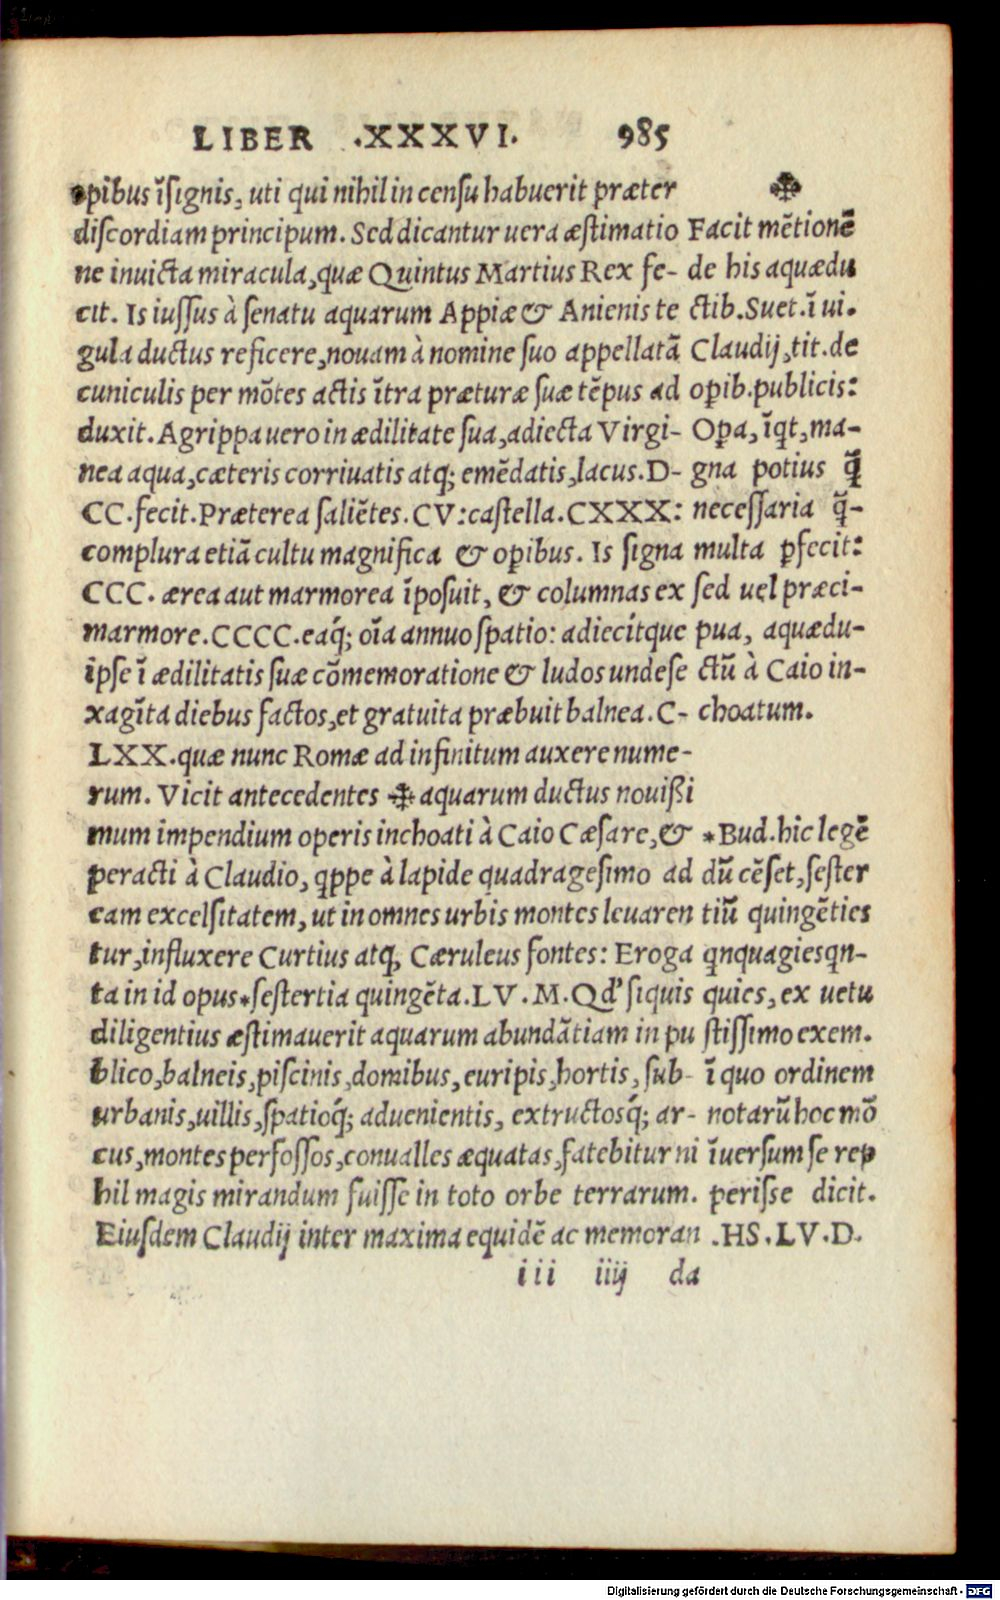 LIBER .XXXVI. 985
opibus ĩsignis, uti qui nihil in censu habuerit præter
discordiam principum. Sed dicantur uera æstimatio
ne inuicta miracula, quæ Quintus Martius Rex fe-
cit. Is iussus à senatu aquarum Appiæ & Anienis te
gula ductus reficere, nouam à nomine suo appellatã
cuniculis per mõtes actis ĩtra præturæ suæ tẽpus ad
duxit. Agrippa uero in ædilitate sua, adiecta Virgi-
nea aqua, cæteris corriuatis atq; emẽdatis, lacus. D-
CC. fecit. Præterea saliẽtes. CV: castella. CXXX:
complura etiã cultu magnifica & oꝑibus. Is signa
CCC. ærea aut marmorea ĩposuit, & columnas ex
marmore. CCCC. eaq́; oĩa annuo spatio: adiecítque
ipse ĩ ædilitatis suæ cõmemoratione & ludos unde se
xagĩta diebus factos, et gratuita præbuit balnea. C-
LXX. quæ nunc Romæ ad infinitum auxere nume-
rum. Vicit antecedentes ✥ aquarum ductus nouißi
mum impendium operis inchoati à Caio Cæsare, &
peracti à Claudio, qp̃pe à lapide quadragesimo ad
eam excelsitatem, ut in omnes urbis montes leuaren
tur, influxere Curtius atq; Cæruleus fontes: Eroga
ta in id opus * sestertia quingẽta. LV. M. Qd' siquis
diligentius æstimauerit aquarum abundãtiam in pu
blico, balneis, piscinis, domibus, euripis, hortis, sub-
urbanis, uillis, spatioq́; aduenientis, extructosq́; ar-
cus, montes perfossos, conualles æquatas, fatebitur ni
hil magis mirandum fuisse in toto orbe terrarum.
Eiusdem Claudij inter maxima equidẽ ac memoran
iii iiij da
✥
Facit mẽtionẽ
de his aquædu
ctib. Suet. ĩ ui.
Claudij, tit. de
oꝑib. publicis:
Oꝑa, ĩqt, ma-
gna potius q̃
necessaria q̃-
multa ꝑfecit:
sed uel præci-
pua, aquædu-
ctũ à Caio in-
choatum.
* Bud. hic legẽ
dũ cẽset, sester
tiũ quingẽties
qnquagies qn-
quies, ex uetu
stissimo exem.
ĩ quo ordinem
notarũ hoc mõ
ĩuersum se rep
perisse dicit.
.HS. LV. D.
Digitalisierung gefördert durch die Deutsche Forschungsgemeinschaft - DFG